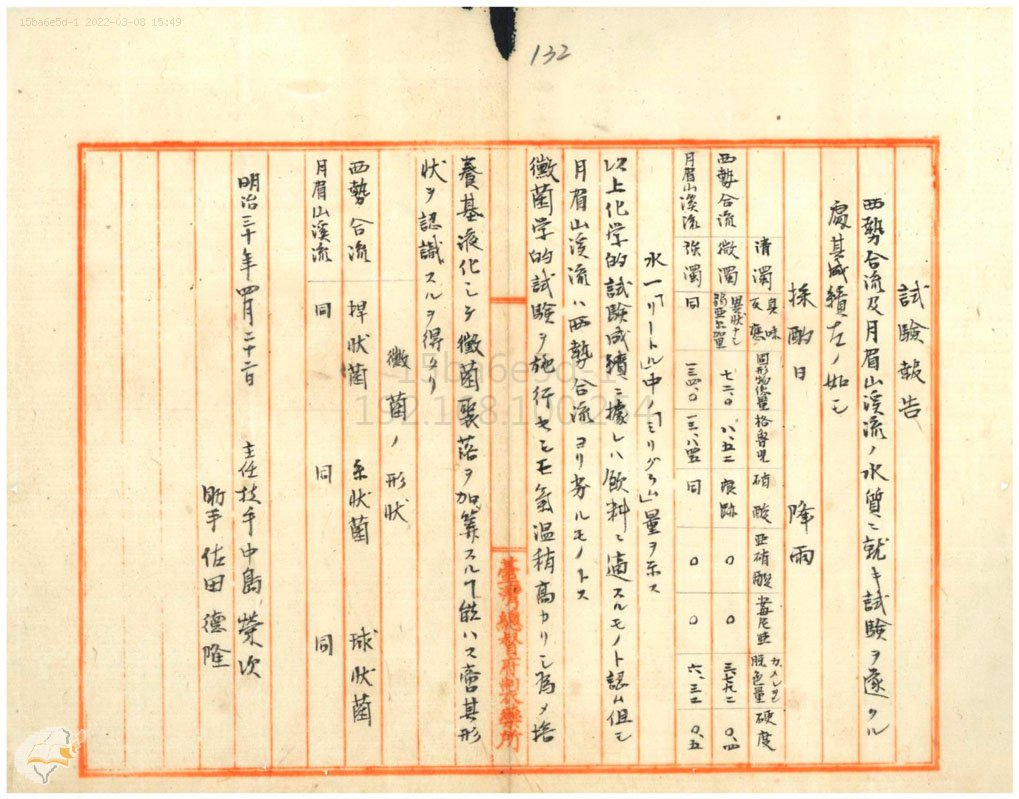 15ba6e5d-1 2022-03-08 15:49
132
試驗報告
西勢合流及月眉山溪流ノ水質ニ就キ試驗ヲ遂クル
處其成績左ノ如シ
採酌日 降雨
清濁 臭味 反應 固形物總量 格魯兒 硝酸 亞硝酸 安母尼亞 カメレオン脱色量 硬度
西勢合流 微濁 異狀ナシ 七二、〇 八、五二 痕跡 〇 〇 三、七九二 〇、四
月眉山溪流 強濁 同 一三四、〇 同 〇 〇 六、三二 〇、五
水一「リートル」中「ミリグラム」量ヲ示ス
以上化学的試驗成績ニ據レハ飲料ニ適スルモノト認ム但シ
月眉山溪流ハ西勢合流ヨリ劣ルモノトス
黴菌学的試驗ヲ施行セシモ氣温稍高カリシ爲メ培
養基液化シテ黴菌聚落ヲ加算スル丁能ハス啻其形
狀ヲ認識スルヲ得タリ
黴菌ノ形状
西勢合流 捍状菌 糸状菌 球状菌
月眉山溪流 同 同 同
明治三十年四月二十二日 主任技手中島榮次
助手佐田德隆
臺灣總督府製藥所
15ba6e5d-1
192.168.100.254